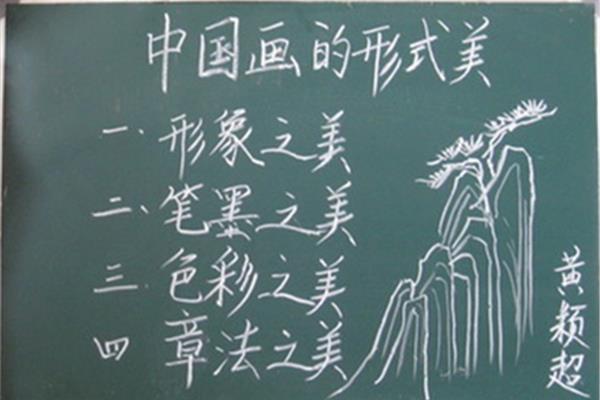 中国画的形式美
一、形象之美
二、笔墨之美
三.色彩之美
四 章法之美
黄颖超